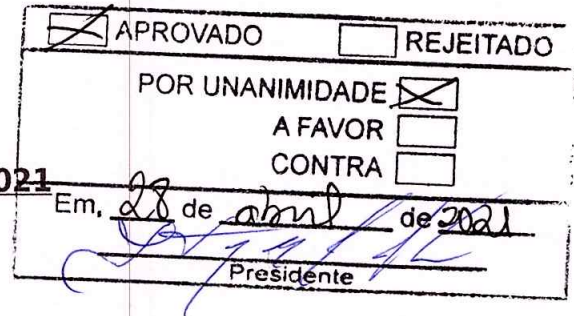 APROVADO REJEITADO
POR UNANIMIDADE
A FAVOR
CONTRA
021
Em, 28 de abril de 2021
Presidente